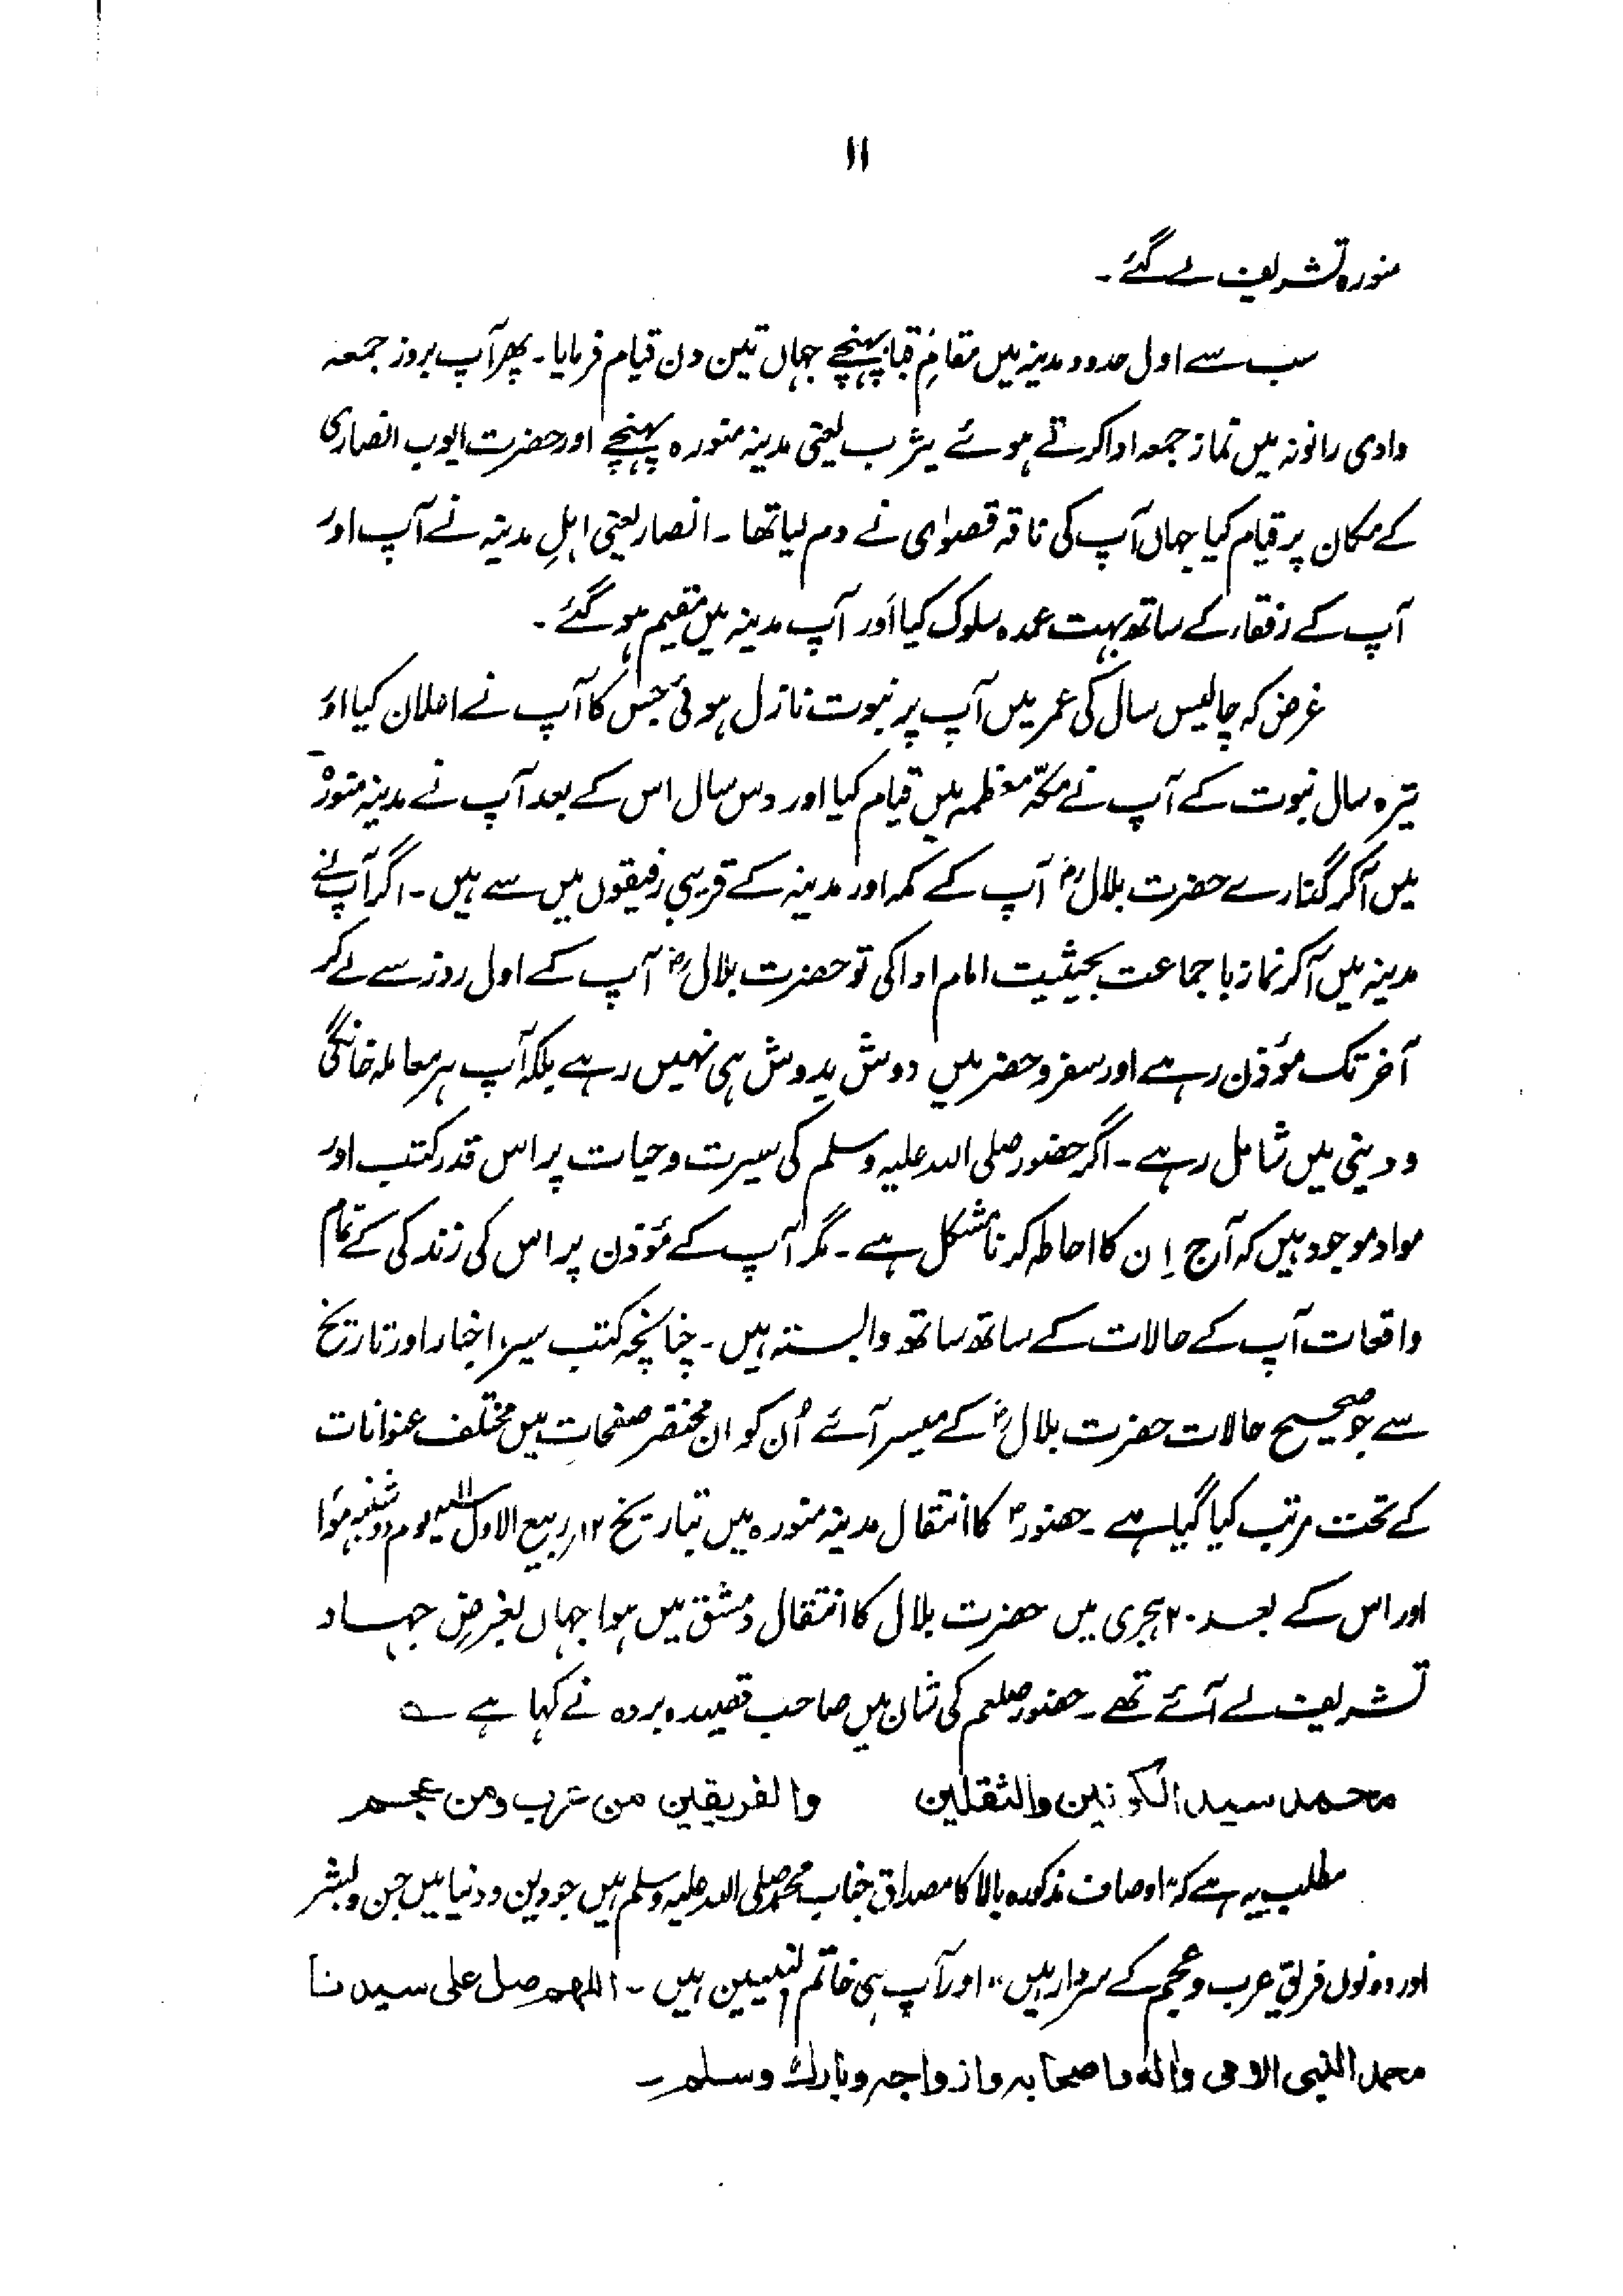 ۱۱
منورہ تشریف لے گئے۔
سب سے اول حدود مدینہ میں مقامِ قبا پہنچے جہاں تین دن قیام فرمایا۔ پھر آپ بروز جمعہ
وادی رانونہ میں نماز جمعہ ادا کرتے ہوئے یثرب یعنی مدینہ منورہ پہنچے اور حضرت ایوب انصاری
کے مکان پر قیام کیا جہاں آپ کی ناقہ قصوٰی نے دم لیا تھا۔ انصار یعنی اہلِ مدینہ نے آپ اور
آپ کے رفقاء کے ساتھ بہت عمدہ سلوک کیا اور آپ مدینہ میں مقیم ہو گئے۔
غرض کہ چالیس سال کی عمر میں آپ پر نبوت نازل ہوئی جس کا آپ نے اعلان کیا اور
تیرہ سال نبوت کے آپ نے مکّہ معظمہ میں قیام کیا اور دس سال اس کے بعد آپ نے مدینہ منورہ
میں آکر گذارے حضرت بلالؓ آپ کے مکہ اور مدینہ کے قریبی رفیقوں میں سے ہیں۔ اگر آپ نے
مدینہ میں آکر نماز با جماعت بحیثیت امام ادا کی تو حضرت بلالؓ آپ کے اول روز سے لے کر
آخر تک مؤذن رہے اور سفر و حضر میں دوش بدوش ہی نہیں رہے بلکہ آپ ہر معاملہ خانگی
و دینی میں شامل رہے۔ اگر حضور صلی اللہ علیہ وسلم کی سیرت و حیات پر اس قدر کتب اور
مواد موجود ہیں کہ آج اِن کا احاطہ کرنا مشکل ہے۔ مگر آپ کے مؤذن پر اس کی زندگی کے تمام
واقعات آپ کے حالات کے ساتھ ساتھ وابستہ ہیں۔ چنانچہ کتب سیر، اخبار اور تاریخ
سے جو صحیح حالات حضرت بلالؓ کے میسر آئے اُن کو ان مختصر صفحات میں مختلف عنوانات
کے تحت مرتب کیا گیا ہے۔ حضورؐ کا انتقال مدینہ منورہ میں بتاریخ ۱۲ ربیع الاول ۱۱ھ یوم دو شنبہ ہوا
اور اس کے بعد ۲۰ ہجری میں حضرت بلال کا انتقال دمشق میں ہوا جہاں بغرضِ جہاد
تشریف لے آئے تھے۔ حضور صلعم کی شان میں صاحب قصیدہ بردہ نے کہا ہے ؎
محمد سید الکونین والثقلین والفریقین من عرب ومن عجم
مطلب یہ ہے کہ "اوصاف مذکورہ بالا کا مصداق جناب محمد صلی اللہ علیہ وسلم ہیں جو دین و دنیا میں جن و بشر
اور دونوں فریق عرب و عجم کے سردار ہیں" اور آپ ہی خاتم النبیین ہیں۔ اللھم صل علی سیدنا
محمد النبی الامی والہ واصحابہ وازواجہ وبارك وسلم۔